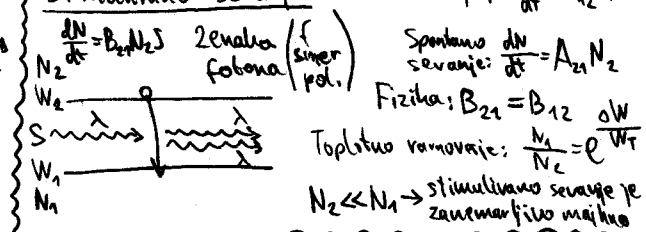 dN/dt = B₂₁N₂S
2 enaka fotona (f smer pol.)
N₂
W₂
S λ λ
W₁ λ
N₁
Spontano sevanje: dN/dt = A₂₁N₂
Fizika: B₂₁ = B₁₂
Toplotno ravnovesje: N₁/N₂ = e^(ΔW/W_T)
N₂ << N₁ → stimulirano sevanje je
zanemarljivo majhno